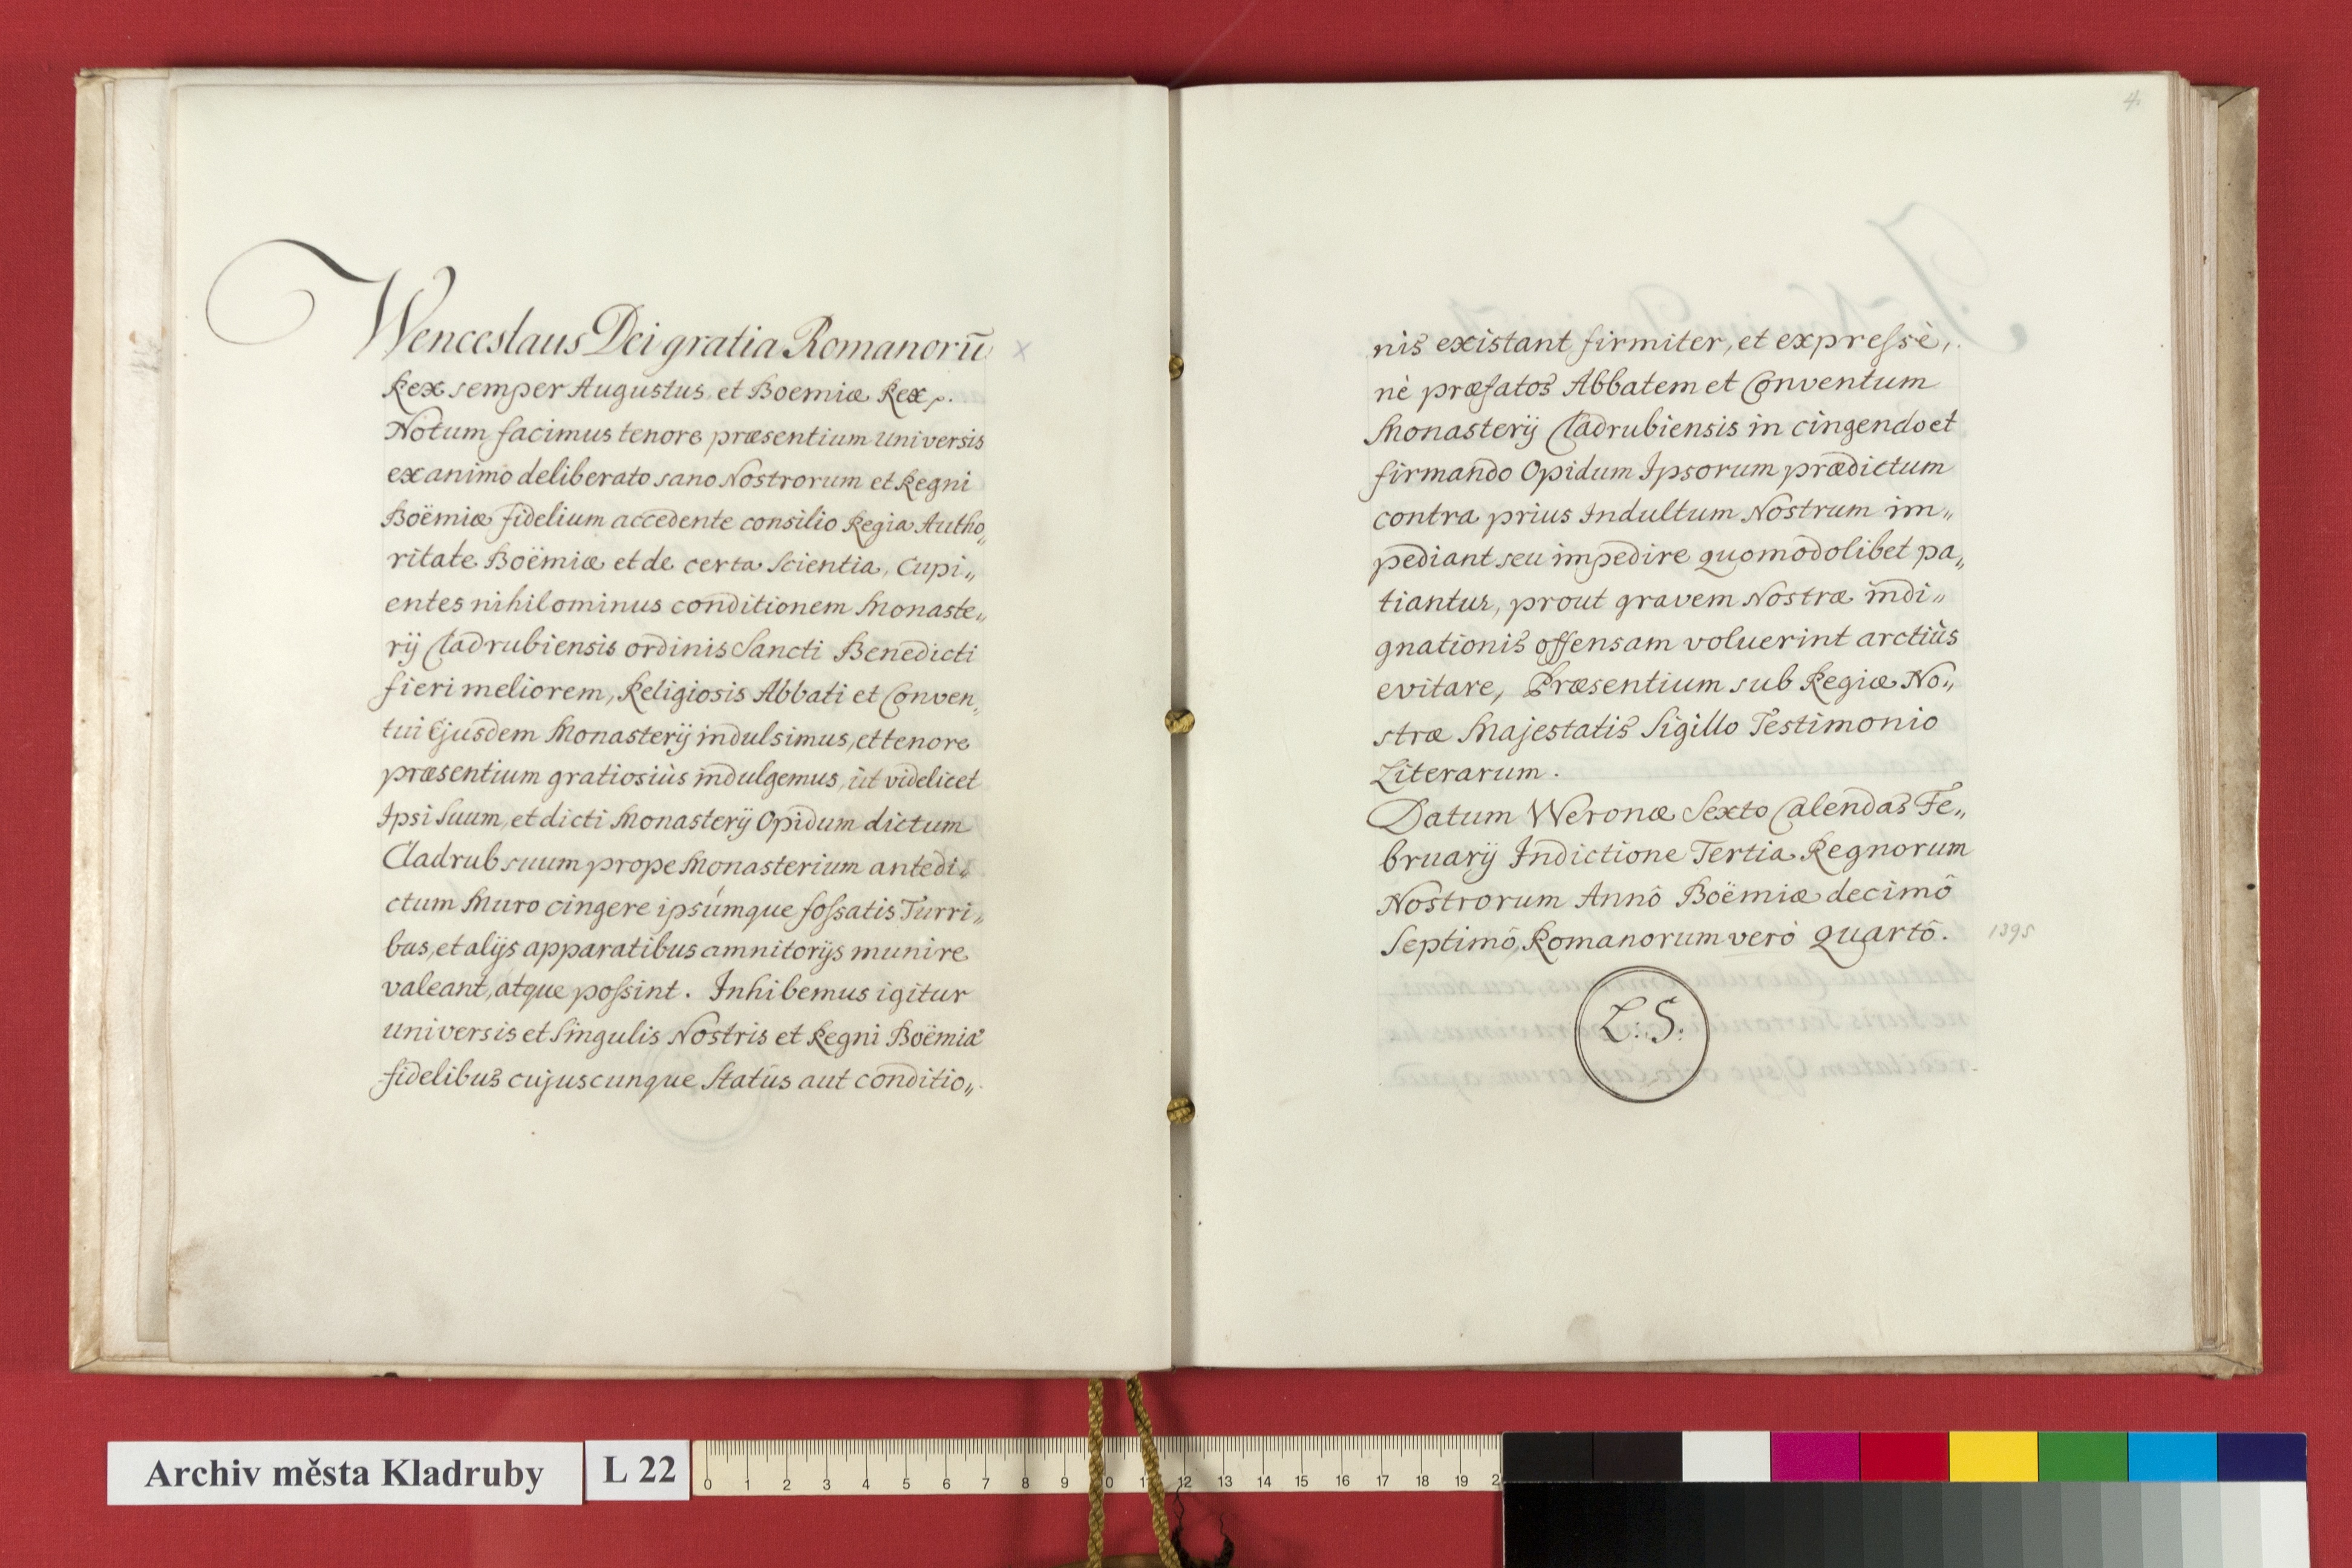 Wenceslaus Dei gratia Romanorū x
Rex semper Augustus, et Boemiæ Rex p.
Notum facimus tenore præsentium universis
ex animo deliberato sano Nostrorum et Regni
Boëmiæ fidelium accedente consilio Regia Autho„
ritate Boëmiæ et de certa Scientia, Cupi„
entes nihilominus conditionem Monaste„
rij Cladrubiensis ordinis Sancti Benedicti
fieri meliorem, Religiosis Abbati et Conven„
tui Ejusdem Monasterij indulsimus, et tenore
præsentium gratiosiùs indulgemus, ùt videlicet
Ipsi Suum, et dicti Monasterij Opidum dictum
Cladrub suum prope Monasterium antedi„
ctum Muro cingere ipsúmque fossatis Turri„
bus, et alijs apparatibus amnitorijs munire
valeant, atque possint. Inhibemus igitur
universis et Singulis Nostris et Regni Boëmiæ
fidelibus cujuscunque Status aut conditio„
4.
nis existant, firmiter, et expressè,
nè præfatos Abbatem et Conventum
Monasterij Cladrubiensis in cingendo et
firmando Opidum Ipsorum prædictum
contra prius Indultum Nostrum im„
pediant seu impedire quomodolibet pa„
tiantur, prout gravem Nostræ indi„
gnationis offensam voluerint arctiùs
evitare, Præsentium sub Regiæ No„
stræ Majestatis Sigillo Testimonio
Literarum.
Datum Weronæ Sexto Calendas Fe„
bruarij Indictione Tertia Regnorum
Nostrorum Annô Boëmiæ decimô
Septimô, Romanorum verò Quartô. 1395
L: S:
Archiv města Kladruby L 22
0 1 2 3 4 5 6 7 8 9 10 11 12 13 14 15 16 17 18 19 2